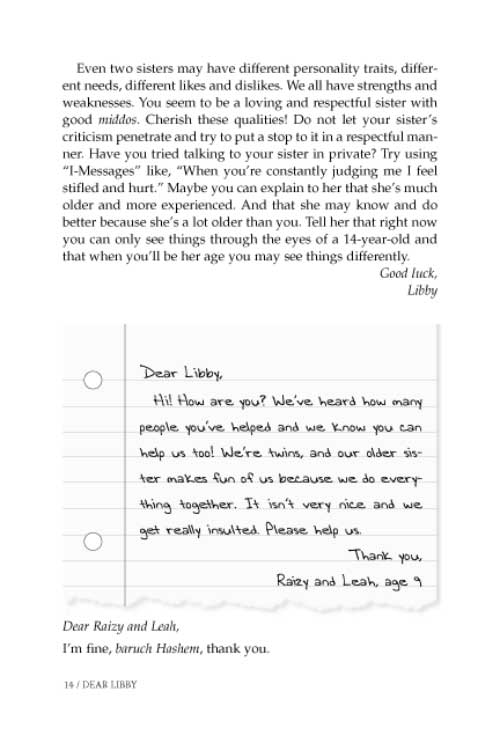 Even two sisters may have different personality traits, differ-
ent needs, different likes and dislikes. We all have strengths and
weaknesses. You seem to be a loving and respectful sister with
good middos. Cherish these qualities! Do not let your sister's
criticism penetrate and try to put a stop to it in a respectful man-
ner. Have you tried talking to your sister in private? Try using
“I-Messages” like, “When you're constantly judging me I feel
stifled and hurt.” Maybe you can explain to her that she's much
older and more experienced. And that she may know and do
better because she's a lot older than you. Tell her that right now
you can only see things through the eyes of a 14-year-old and
that when you'll be her age you may see things differently.
Good luck,
Libby
Dear Libby,
Hi! How are you? We've heard how many
people you've helped and we know you can
help us too! We're twins, and our older sis-
ter makes fun of us because we do every-
thing together. It isn't very nice and we
get really insulted. Please help us.
Thank you,
Raizy and Leah, age 9
Dear Raizy and Leah,
I'm fine, baruch Hashem, thank you.
14 / DEAR LIBBY